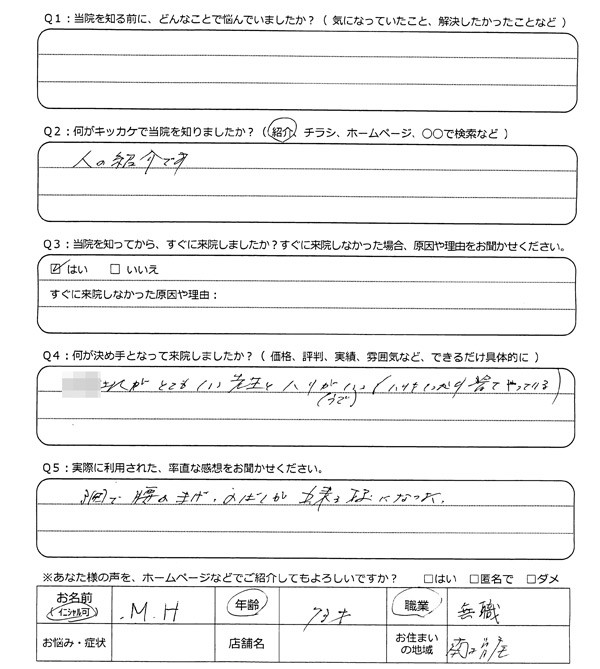 Q1：当院を知る前に、どんなことで悩んでいましたか？（ 気になっていたこと、解決したかったことなど ）
Q2：何がキッカケで当院を知りましたか？（ 紹介、チラシ、ホームページ、〇〇で検索など ）
人の紹介です
Q3：当院を知ってから、すぐに来院しましたか？すぐに来院しなかった場合、原因や理由をお聞かせください。
☑ はい □ いいえ
すぐに来院しなかった原因や理由：
Q4：何が決め手となって来院しましたか？（ 価格、評判、実績、雰囲気など、できるだけ具体的に ）
がとてもいい先生とハリがいい
(うで)
Q5：実際に利用された、率直な感想をお聞かせください。
3回で腰の
※あなた様の声を、ホームページなどでご紹介してもよろしいですか？ □はい □匿名で □ダメ
お名前
(イニシャル可)
M.H
年齢
73才
職業
無職
お悩み・症状
店舗名
お住まい
の地域